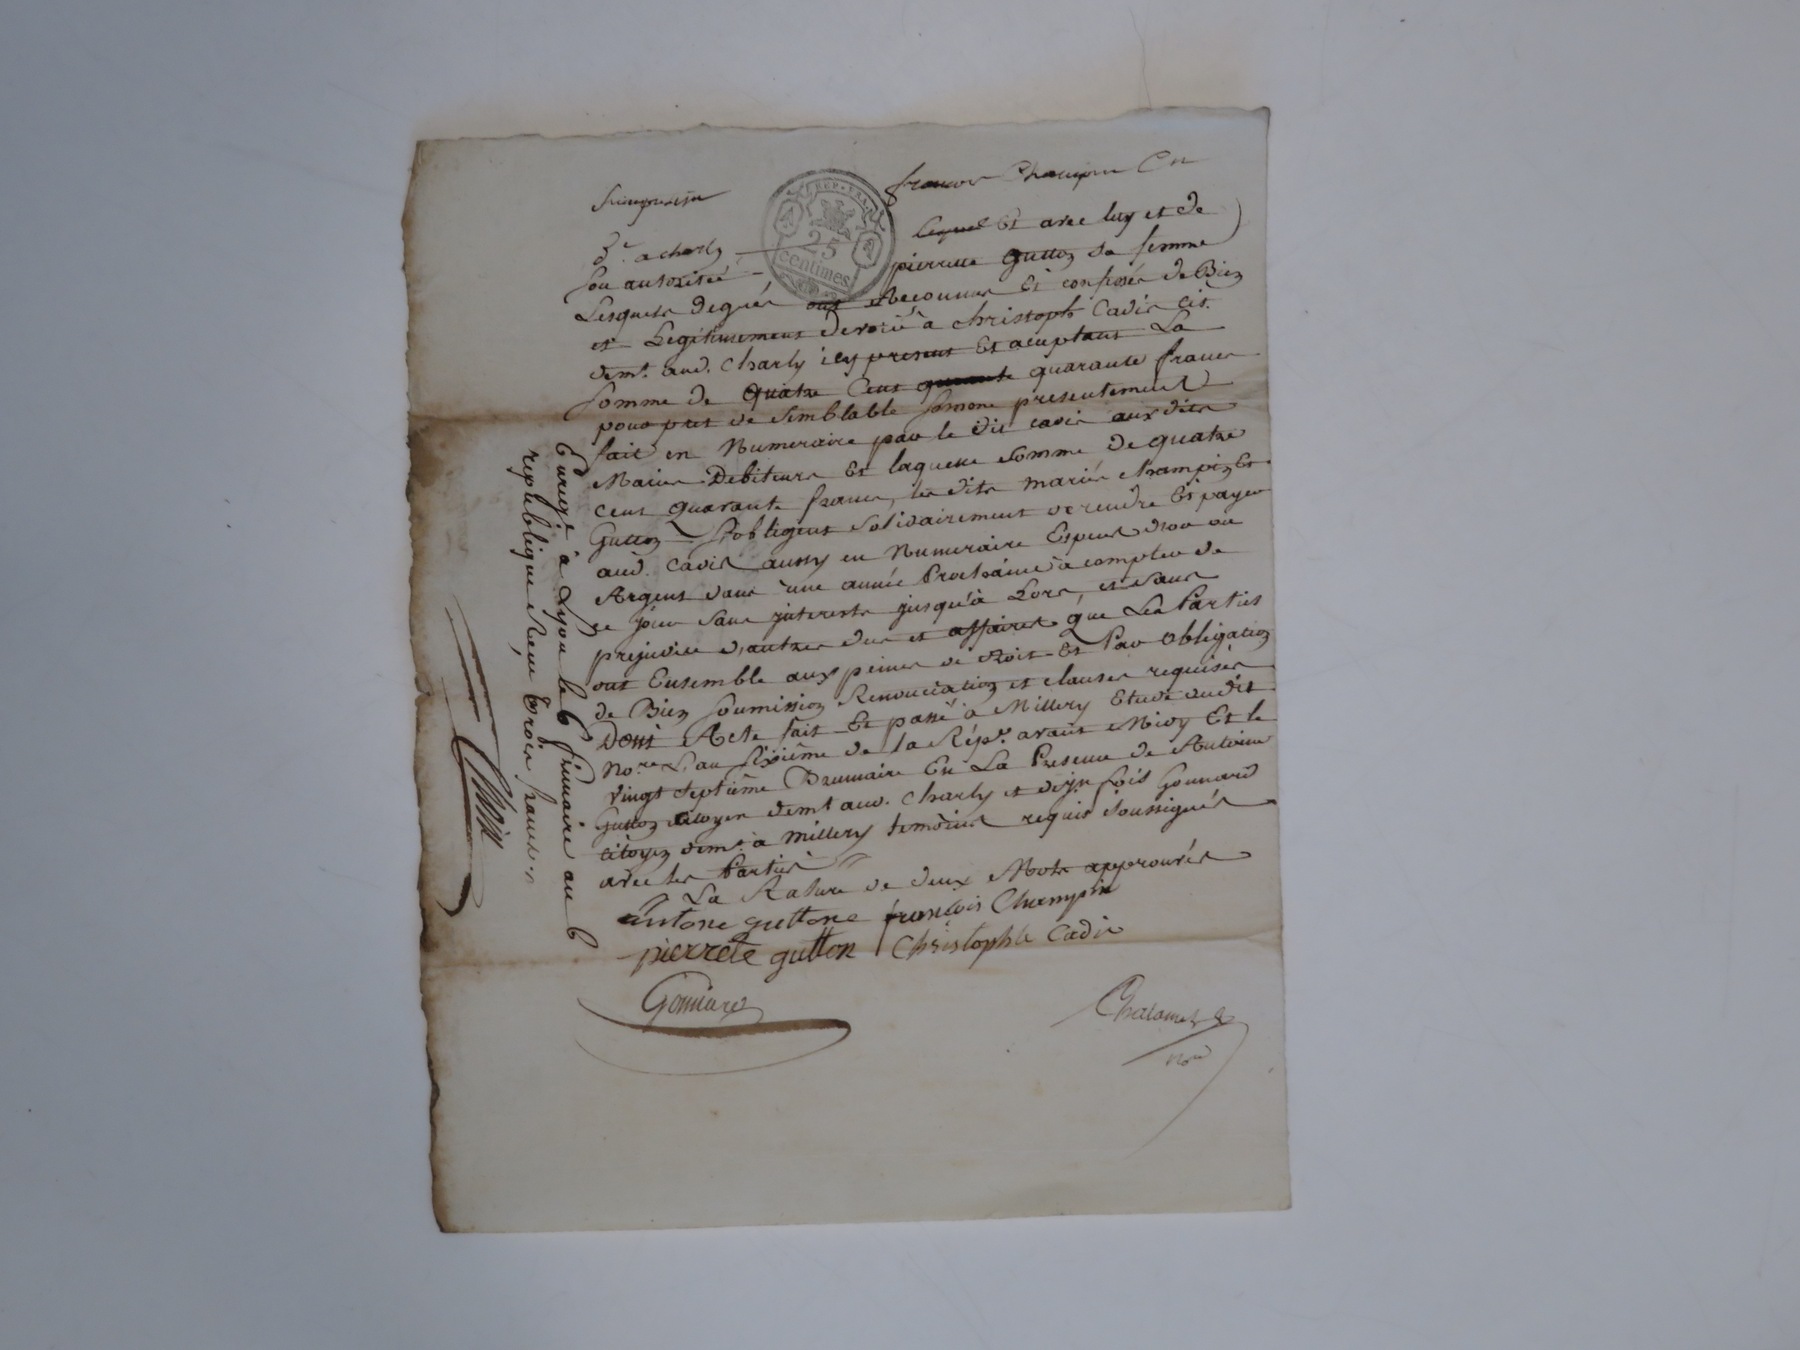 françois Champin Cn
REP. FRA.
25
centimes
d.t a charly lequel Et avec luy et de
son autoritée pierrette Gutton sa femme
Lesquels de grés ont Reconnus Et confessés de Bien
et Legitimement devoir à christoph Cadis cit.
dem.t aud. Charly icy present Et aceptant La
somme de quatre Cent quarante francs
pour pret de semblable somme presentement
fait en Numeraire par le dit cadis aux dits
Mariés Debiteurs Et laquelle somme de quatre
cent quarante francs, les dits mariés champin Et
Gutton S'obligent solidairement de rendre Et payer
aud. Cadis aussy en Numeraire Especes d'or ou
Argent dans une année Prochaine à compter de
ce jour sans jnterests jusqu'à Lors, et sans
prejudice d'autres dus et affaires que Les Parties
ont Ensemble aux peines de droit Et Par obligation
de Bien soumission Renonciation et clauses requises
Dont Acte fait Et passé à Millery Etude dudit
No.re L'an sixième de la Rép.e avant Midy Et le
vingt septième Brumaire En La Presence de Antoine
Gutton citoyen demt aud. Charly et Gonnard
citoyen dem.t à Millery temoins requis soussignés
avec les Parties
La Rature de deux Mots approuvés
antone guttone françois Champin
pierrete gutton Christophle Cadis
Gonnard
Chalamel
no.re
Enregé à Lyon le 6 frimaire an 6
replublique Reçu trois francs